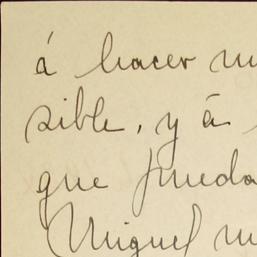 á hacer
sible, y á
que pueda
Miguel